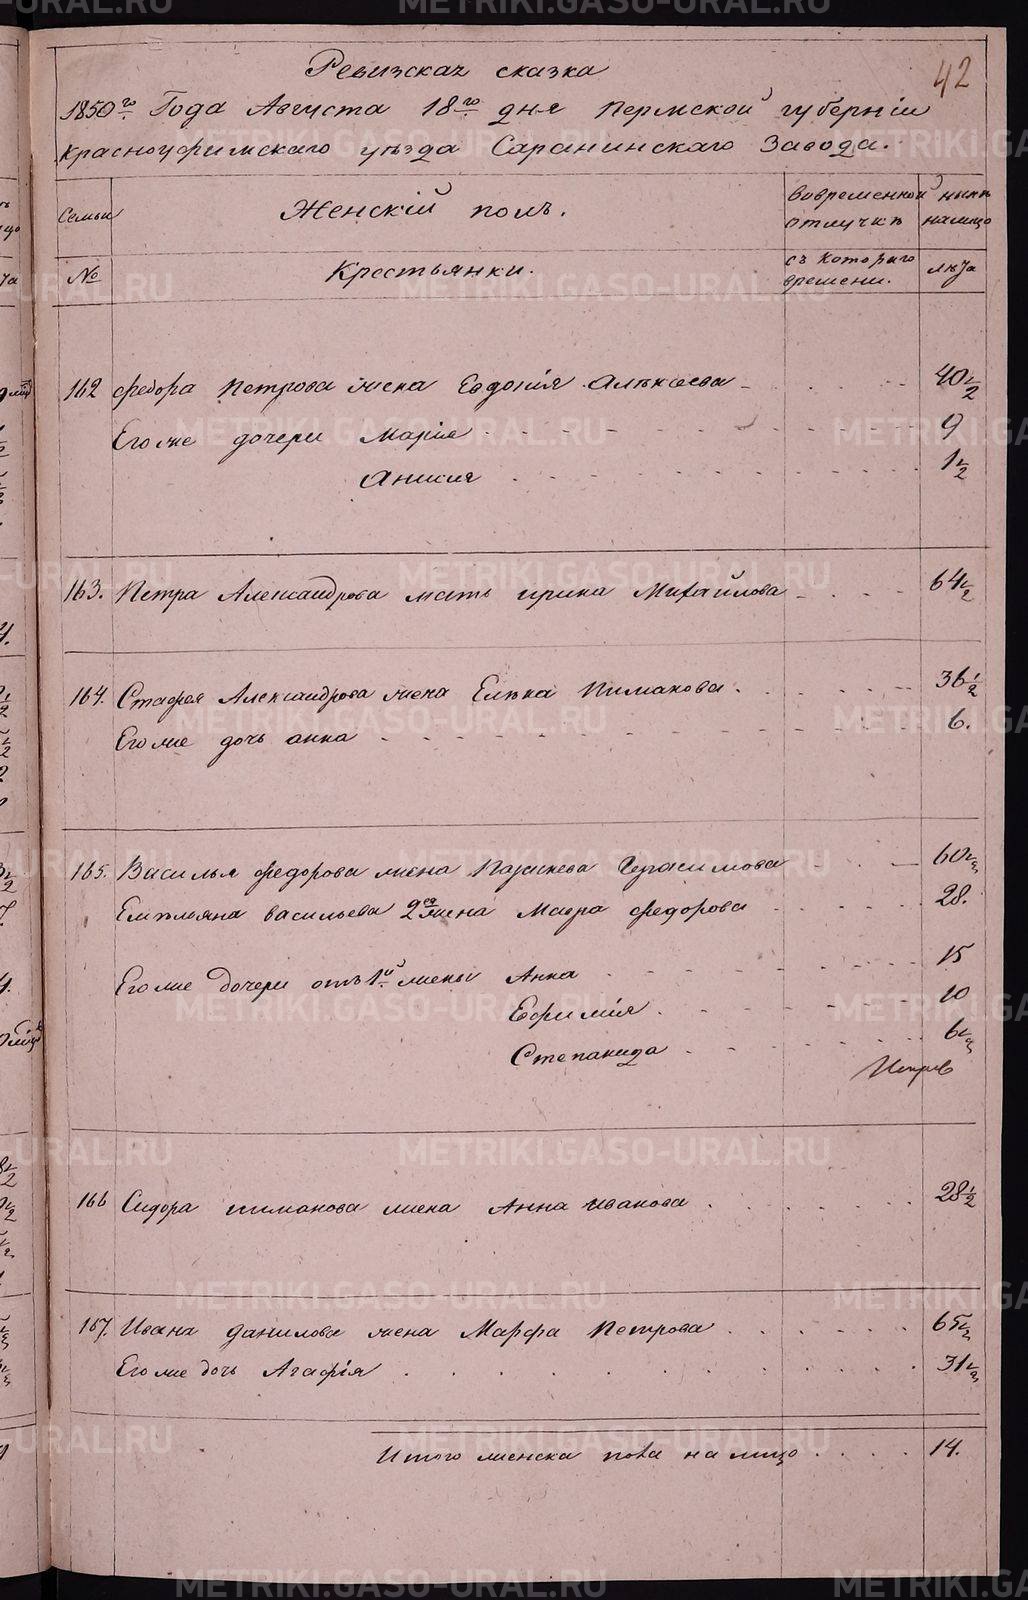 42
Ревизская сказка
1850го Года Августа 18го дня Пермской губернiи
Красноуфимскаго уѣзда Саранинскаго Завода.
Семьи
Женскiй полъ.
во временной отлучкѣ
нынѣ на лицо
№
Крестьянки.
съ котораго времени.
лѣта
162 Федора Петрова жена Евдокiя Алѣксеева 40 1/2
Его же дочери Марiя 9
Анисия 1 1/2
163. Петра Александрова мать ирина Михайлова 64 1/2
164. Александрова жена Елѣна Пиманова. 36 1/2
Его же дочь анна 6.
165. Василья Федорова жена Параскева Герасимова 60 1/2
Емѣльяна васильева 2ая жена Мавра Федорова 28.
Его же дочери отъ 1й жены Анна 15
Ефимiя 10
Степанида 6 1/2
166 Сидора пиманова жена Анна иванова 28 1/2
167. Ивана данилова жена Марфа Петрова 65 1/2
Его же дочь Агафiя 31 1/2
Итого женска пола на лицо 14.
METRIKI.GASO-URAL.RU